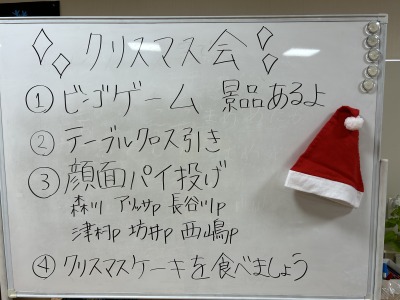 クリスマス会
① ビンゴゲーム 景品あるよ
② テーブルクロス引き
③ 顔面パイ投げ
森川 アリッサP 長谷川P
津村P 坊井P 西嶋P
④ クリスマスケーキを食べましょう